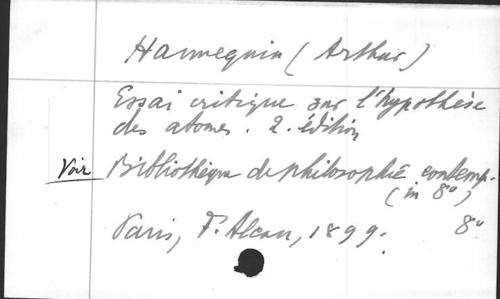 Hannequin (Arthur)
Essai critique sur l'hypothèse
des atomes. 2. édition
Voir Bibliothèque de philosophie contemp.
(in 8°)
Paris, F. Alcan, 1899. 8°